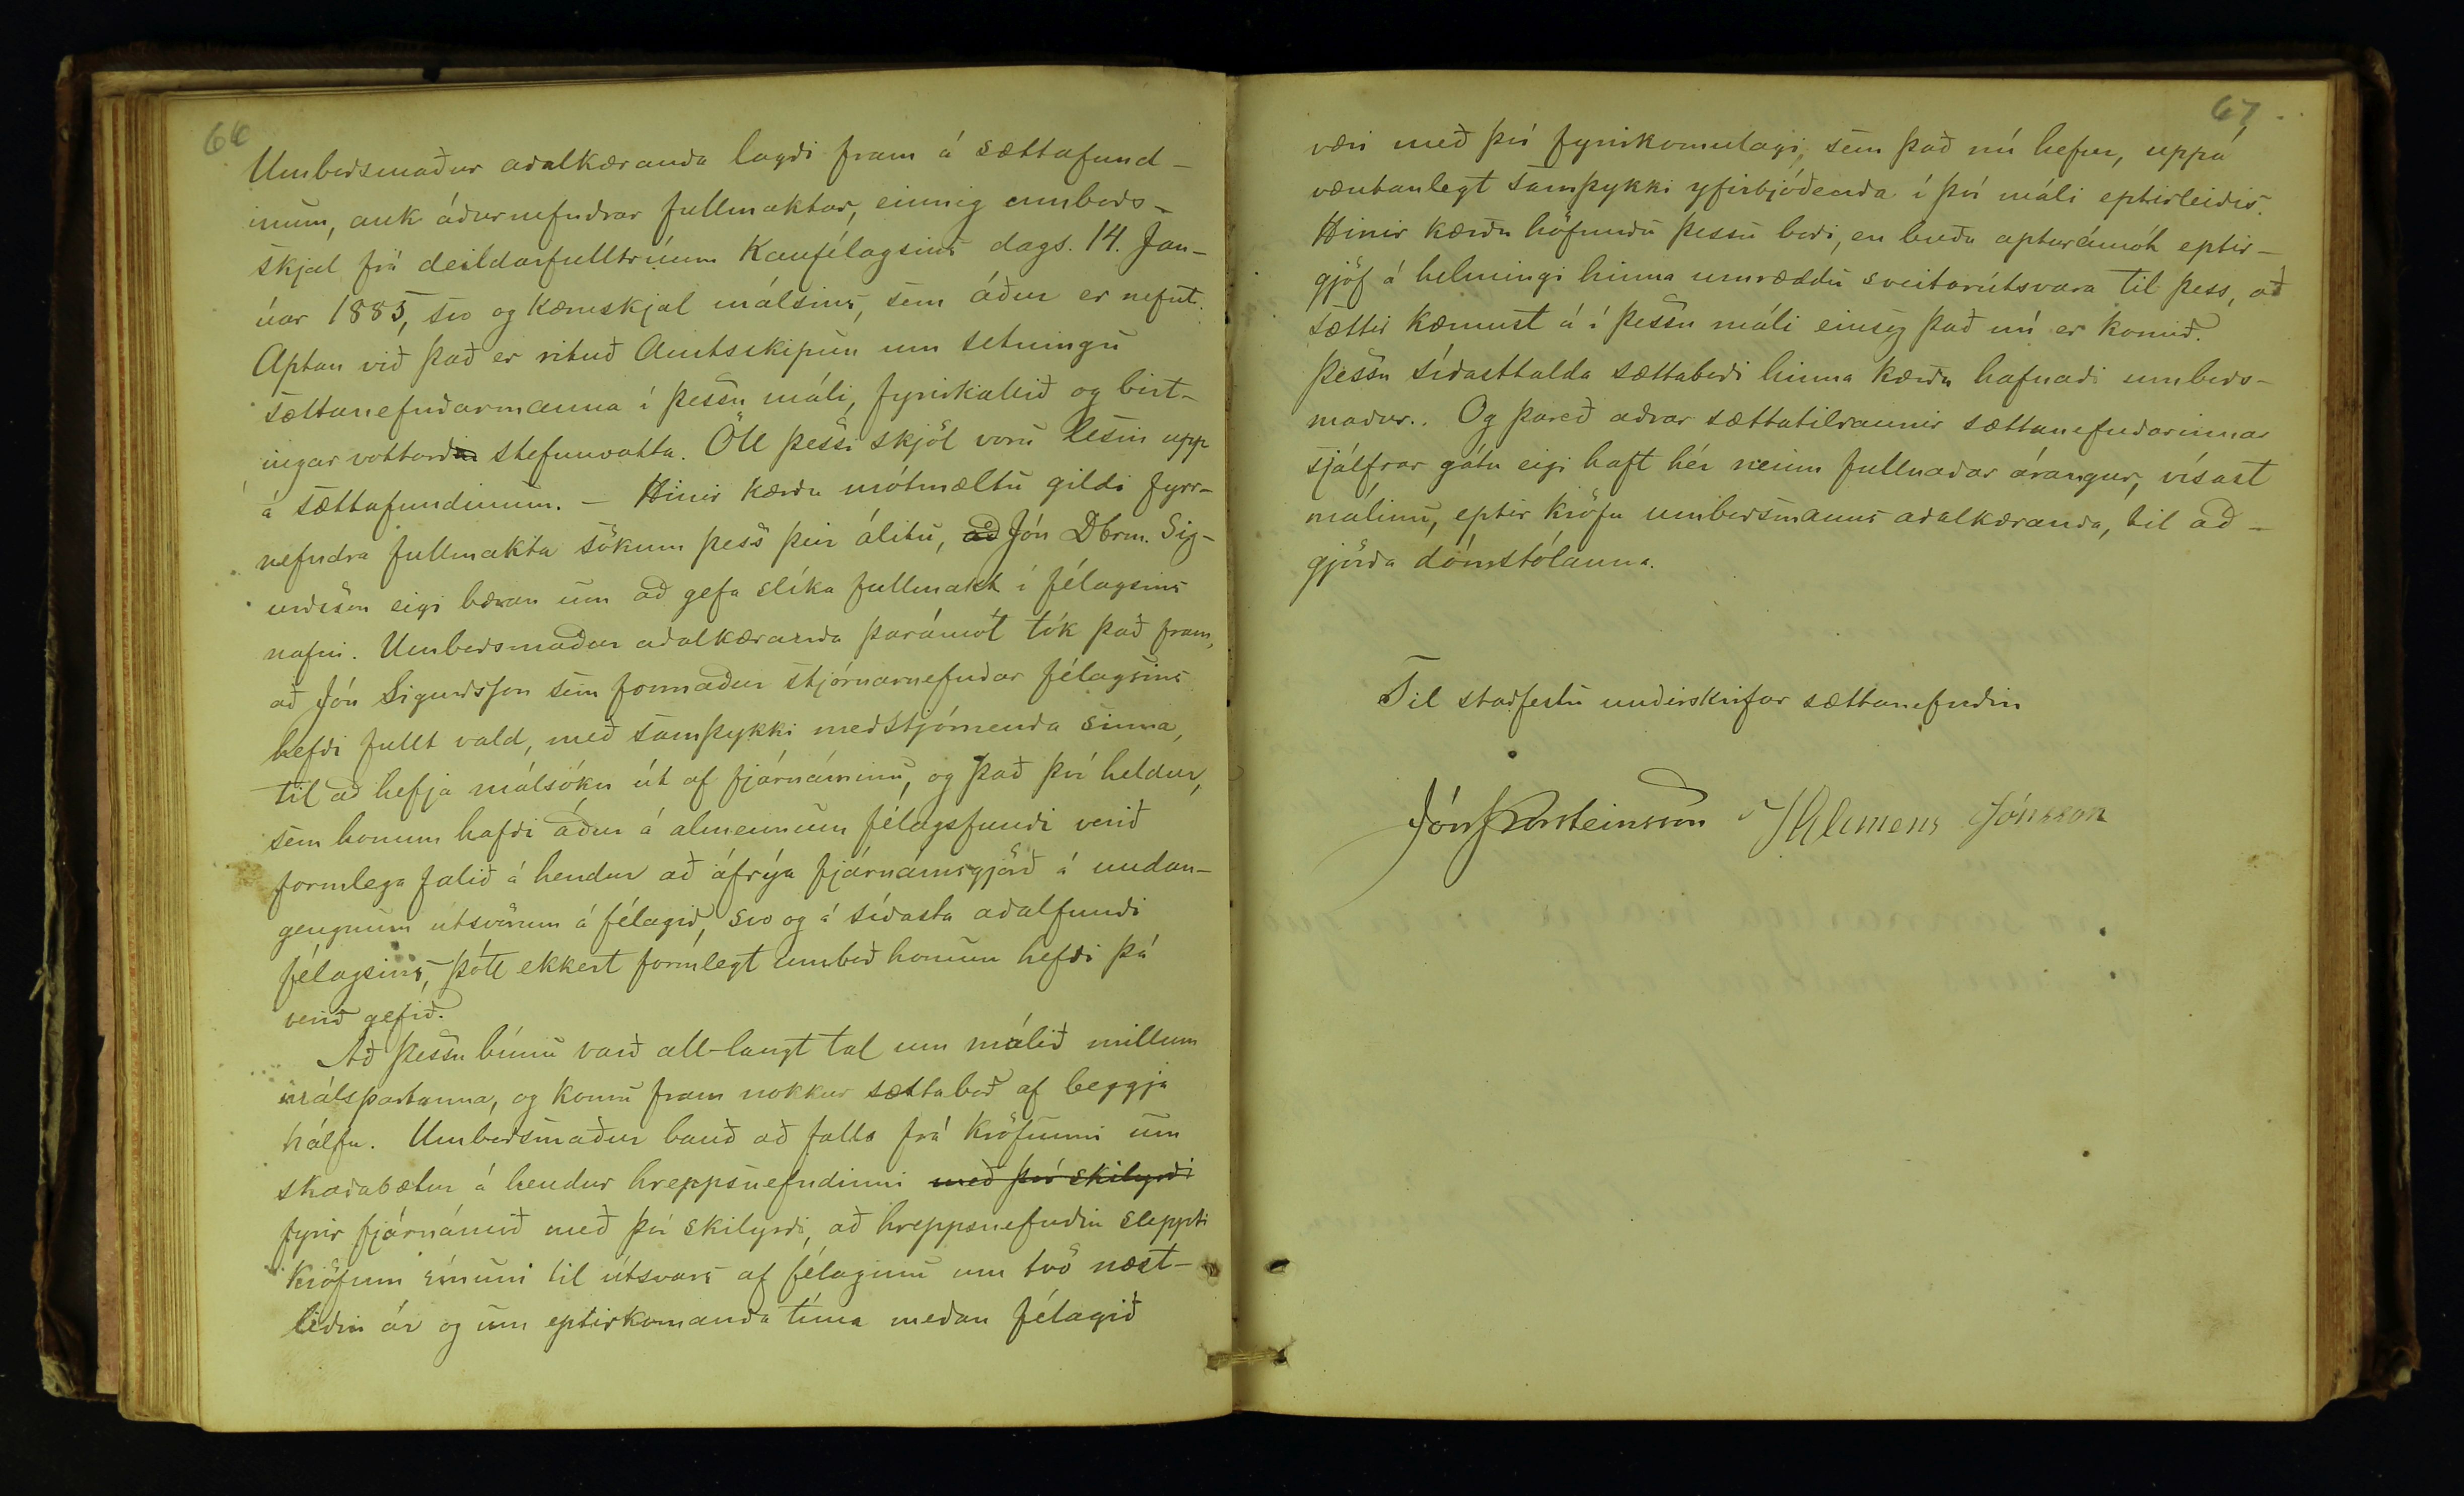 66
Umboðsmaður aðalkæranda lagði fram á sættafund-
inum, auk áðurnefndrar fullmaktar, einnig umboðs-
skjal frá deildarfulltrúum Kaupfélagsins dags. 14. Jan-
úar 1885, svo og Kæruskjal málsins, sem áður er nefnt.
Aptan við það er rituð Amtsskipun um setningu
sættanefndarmanna í þessu máli, fyrirkallið og birt-
ingar vottorð stefnuvotta. Öll þessi skjöl voru lesin upp
á sættafundinum. - Hinir kærðu mótmæltu gildi fyrr-
nefndra fullmakta sökum þess þeir álitu, að Jón Dbrm. Sig-
urðsson eigi bæran um að gefa slíka fullmakt í félagsins
nafni. Umboðsmaður aðalkæranda þarámót tók það fram,
að Jón Sigurðsson sem formaður stjórnarnefndar félagsins
hefði fullt vald, með samþykki meðstjórnenda sinna,
til að hefja málsókn út af fjárnáminu, og það því heldur,
sem honum hafði áður á almennum félagsfundi verið
formlega falið á hendur að áfrýja fjárnámsgjörð á undan-
gengnum útsvörum á félagið, svo og á síðasta aðalfundi
félagsins, þótt ekkert formlegt umboð honum hefði þá
verið gefið.
Að þessu búnu varð all-langt tal um málið millum
málspartanna, og komu fram nokkur sættaboð af beggja
hálfu. Umboðsmaður bauð að falla frá kröfunni um
skaðabætur á hendur hreppsnefndinni með því skilyrði
fyrir fjárnámið með því skilyrði, að hreppsnefndin sleppti
kröfum sínum til útsvars af félaginu um tvö næst-
liðin ár og um eptirkomanda tíma meðan félagið
67.
væri með því fyrirkomulagi, sem það nú hefur, uppá
væntanlegt samþykki yfirbjóðenda í því máli eptirleiðis.
Hinir kærðu höfnuðu þessu boði, en buðu apturámót eptir-
gjöf á helmingi hinna umræddu sveitarútsvara til þess, að
sættir kæmust á í þessu máli einsog það nú er komið.
Þessu síðasttalda sættaboði hinna kærðu hafnaði umboðs-
maður.. Og þareð aðrar sættatilraunir sættanefndarinnar
sjálfrar gátu eigi haft hér neinn fullnaðar árangur, vísast
málinu, eptir kröfu umboðsmanns aðalkæranda, til að-
gjörða dómstólanna.
Til staðfestu undirskrifar sættanefndin
Jón Þorsteinsson Klemens Jónsson